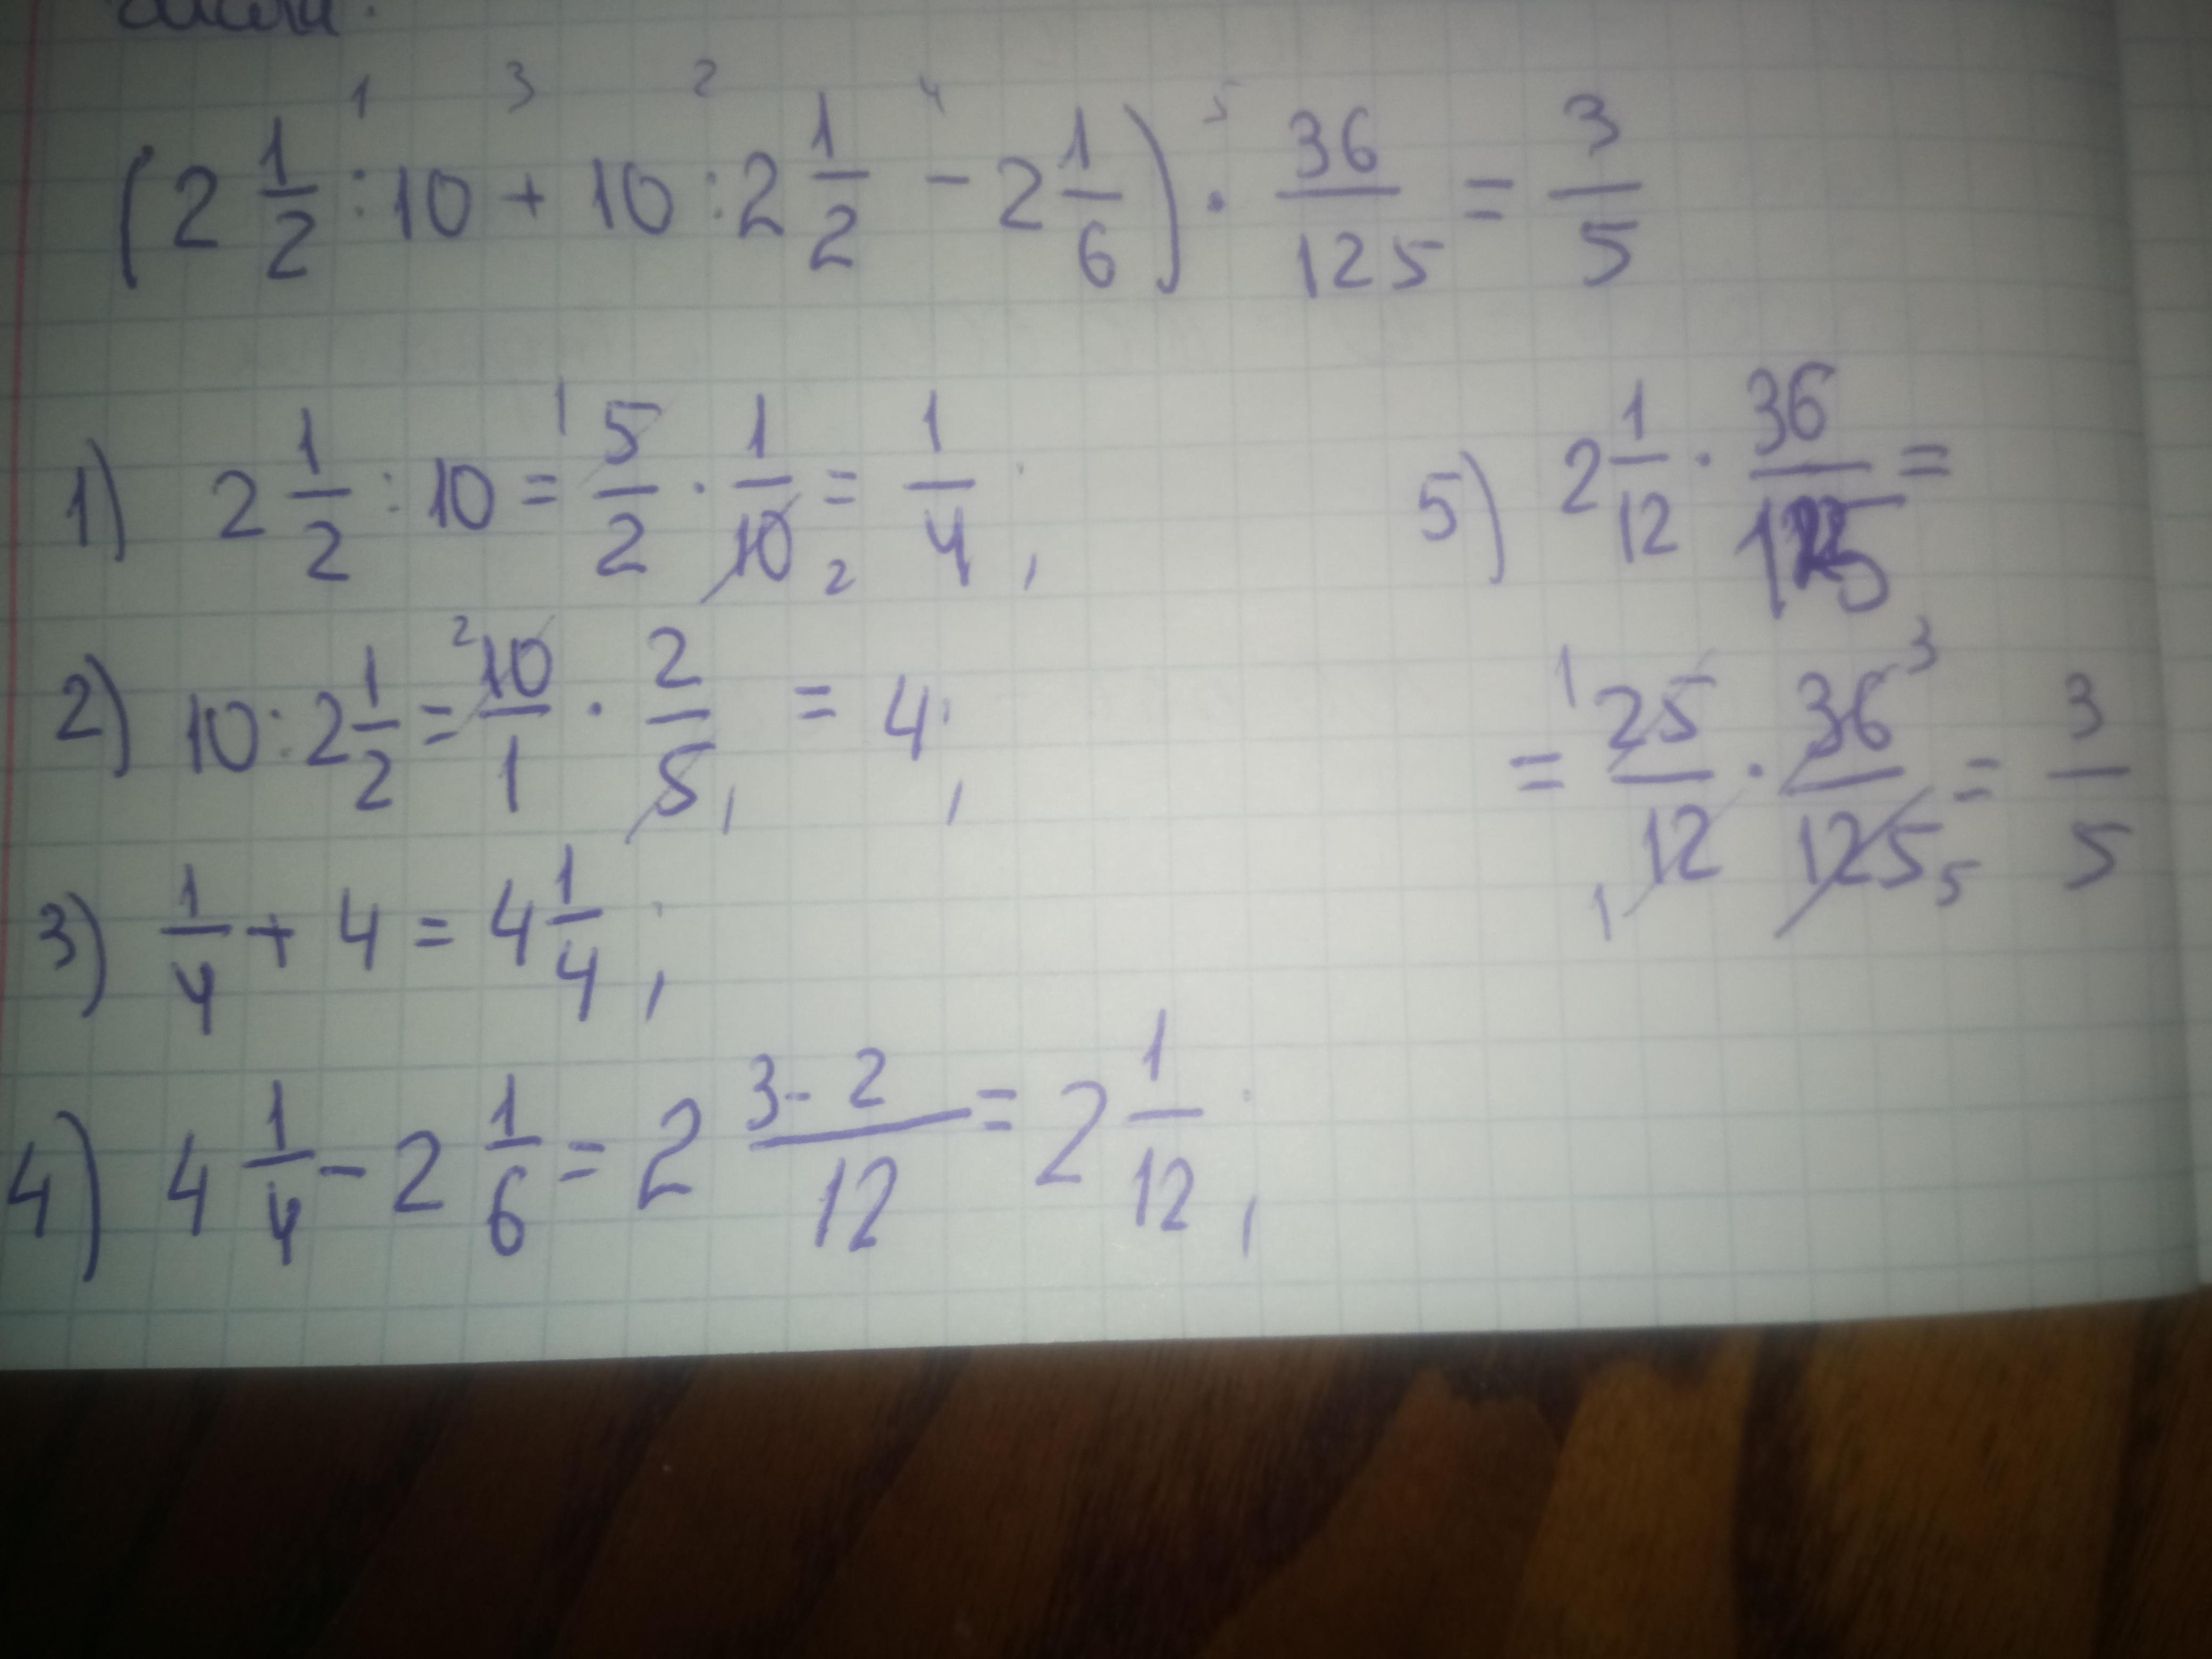 1 3 2 4 5
(2 1/2 : 10 + 10 : 2 1/2 - 2 1/6) · 36/125 = 3/5
1) 2 1/2 : 10 = 5/2 · 1/10 = 1/4;
2) 10 : 2 1/2 = 10/1 · 2/5 = 4;
3) 1/4 + 4 = 4 1/4;
4) 4 1/4 - 2 1/6 = 2 3-2/12 = 2 1/12;
5) 2 1/12 · 36/125 =
= 25/12 · 36/125 = 3/5